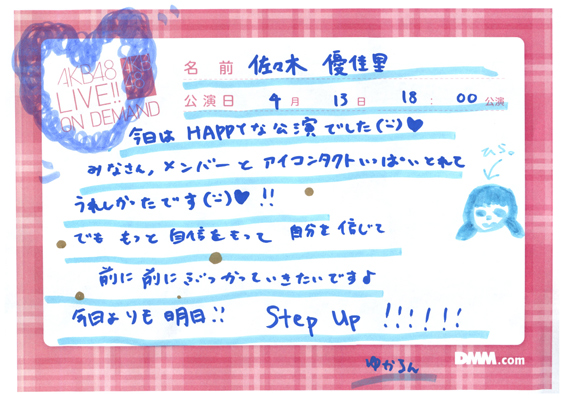 AKB48
LIVE!!
ON DEMAND
AKB
48
名 前 佐々木 優佳里
公演日 4 月 13 日 18 : 00 公演
今日は HAPPYな公演でした(ﾆ)♥
みなさん,メンバーと アイコンタクトいっぱいとれて
うれしかったです(ﾆ)♥ !!
でも もっと 自信をもって 自分を信じて
前に前に ぶつかっていきたいです♪
今日よりも明日!! Step Up !!!!!!
ゆかるん
DMM.com